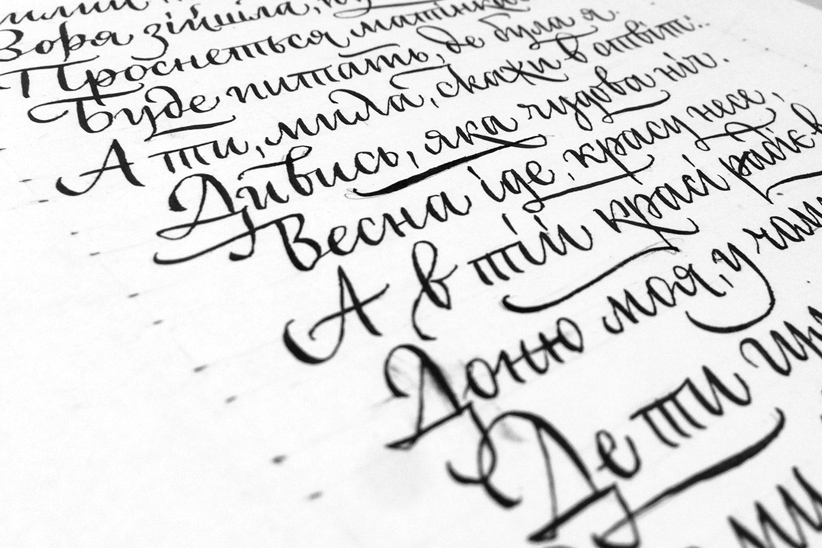 Зоря зійшла, п
Проснеться матінка
Буде питать, де була я.
А ти, мила, скажи в отвіт:
Дивись, яка чудова ніч.
Весна іде, красу несе,
А в тій красі радіє в
Доню моя, у чам
Де ти
ми